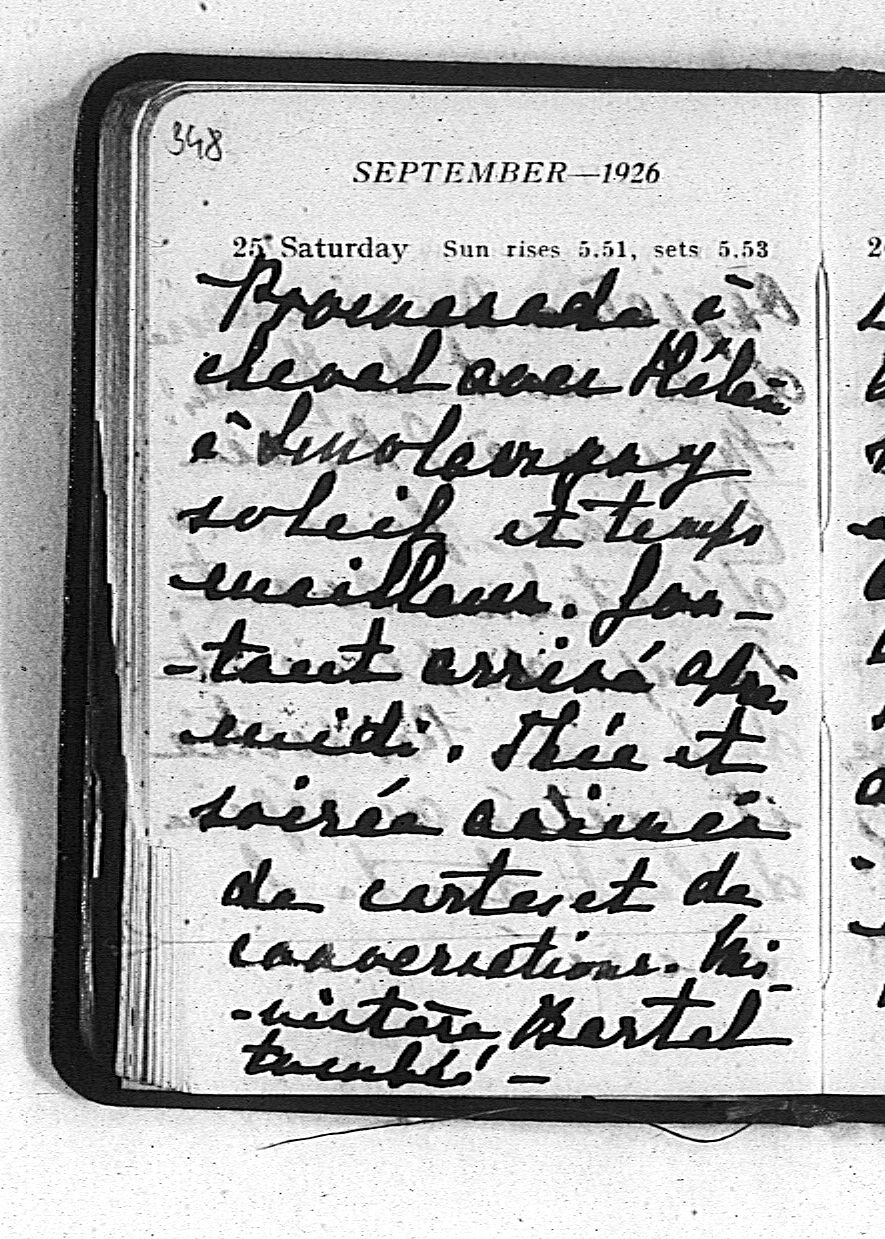 348
SEPTEMBER—1926
25 Saturday Sun rises 5.51, sets 5.53
Promenade à
cheval avec Hélène
à
soleil et temps
meilleur.
-tant arrivé après
midi. Thée et
soirée animée
de cartes et de
conversations. Mi-
-nistère Bartel
tombé –